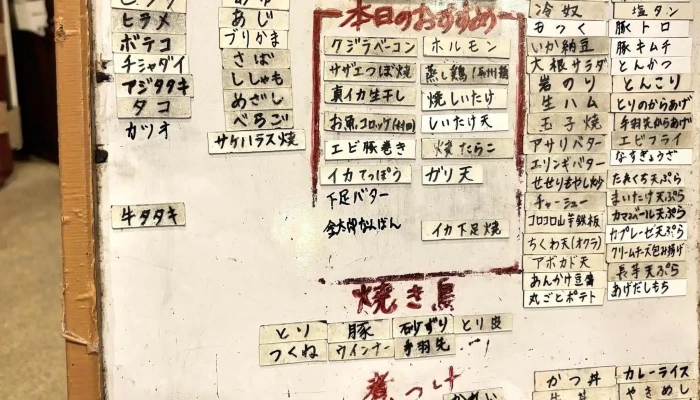 ヒラメ
ボテコ
チシャダイ
アジタタキ
タコ
カツオ
牛タタキ
あじ
ブリかま
さば
ししゃも
めざし
べらご
サケハラス焼
本日のおすすめ
クジラベーコン
サザエつぼ焼
真イカ生干し
お魚コロッケ
エビ豚巻き
イカてっぽう
下足バター
金太郎かんばん
ホルモン
蒸し鶏
焼しいたけ
しいたけ天
焼たらこ
ガリ天
イカ下足焼
冷奴
もっく
いか納豆
大根サラダ
岩のり
生ハム
玉子焼
アサリバター
エリンギバター
せせりもやし炒
チャーシュー
コロコロ山芋鉄板
ちくわ天(オクラ)
アボカド天
あんかけ豆腐
丸ごとポテト
塩タン
豚トロ
豚キムチ
とんかつ
とんこり
とりのからあげ
手羽先からあげ
エビフライ
なすぎょうざ
たれくち天ぷら
まいたけ天ぷら
カマンベール天ぷら
カプレーゼ天ぷら
クリームチーズ包み揚げ
長芋天ぷら
あげだしもち
焼き鳥
とり 豚 砂ずり とり皮
つくね ウインナー 手羽先
煮つけ
かつ丼 カレーライス
やきめし